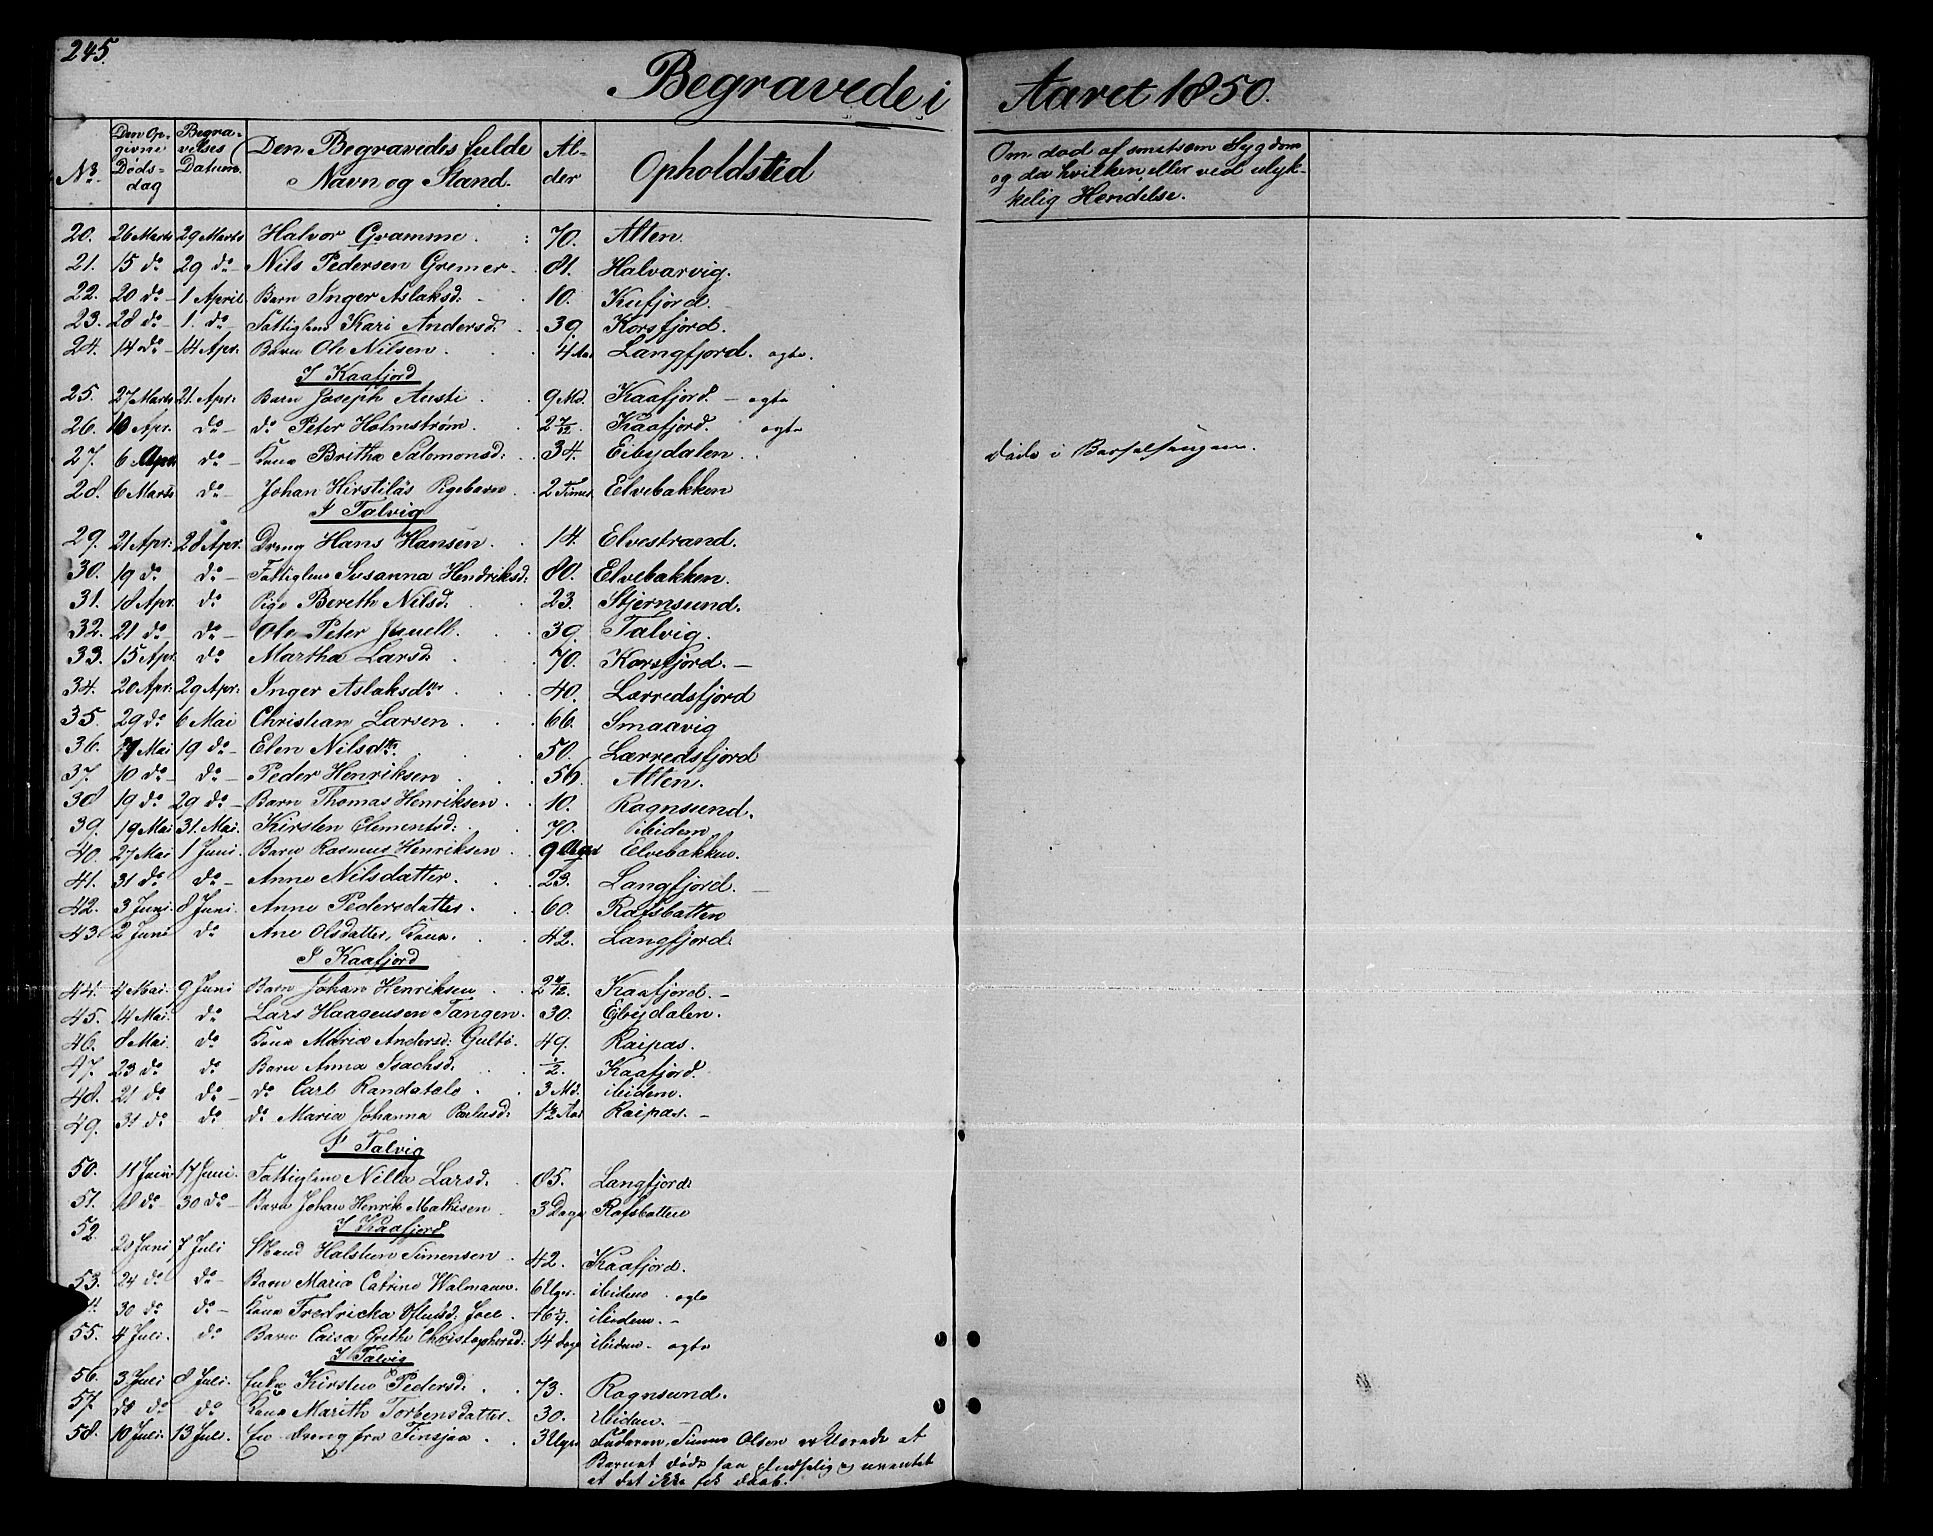 245.
Begravede i Aaret 1850.
No. Den Opgivne Dødsdag Begravelses Datum. Den Begravedes fulde Navn og Stand. Alder Opholdsted Om død af smitsom Sygdom og da hvilken, eller ved ulykkelig Hendelse.
20. 26 Marts 29 Marts Halvor Gramme. 70. Alten.
21. 15 do 29 do Nils Pedersen Gremer. 81. Halvarvig.
22. 20 do 1 April Barn Inger Aslaksd: 10. Kufjord.
23. 28 do 1. do Fattiglem Kari Andersd. 39. Korsfjord.
24. 14 do 14 Apr. Barn Ole Nilsen. 4 Aar Langfjord. ægte.
I Kaafjord
25. 27 Marts 21 Apr. Barn Joseph Austi 9 Md. Kaafjord. ægte
26. 10 Apr. do do Peter Holmstrøm 2 7/12. Kaafjord. ægte
27. 6 Apr. do Kona Britha Salomonsd: 34. Eibydalen. døde i Barselsengen.
28. 6 Marts do Johan Hirstiläs Pigebarn 2 Timer Elvebakken
I Talvig
29. 21 Apr: 28 Apr. Dreng Hans Hansen. 14. Elvestrand.
30. 19 do do Fattiglem Susanna Hendriksd: 80. Elvebakken.
31. 18 Apr. do Pige Bereth Nilsd: 23. Stjernsund.
32. 21 do do Ole Peter Junell. 39. Talvig.
33. 15 Apr. do Martha Larsd. 70. Korsfjord.
34. 20 Apr: 29 Apr: Inger Aslaksdtr 40. Lærredsfjord
35. 29 do 6 Mai Christian Larsen 66. Smaavig
36. 7 Mai 19 do Elen Nilsdtr. 50. Lærredsfjord
37. 10 do do Peder Henriksen 56. Alten.
38 19 do 29 do Barn Thomas Henriksen 10. Rognsund.
39. 19 Mai 31. Mai. Kirsten Clementsd: 70. ibidem
40. 27 Mai 1 Juni Barn Rasmus Henriksen 9 Elvebakken.
41. 31 do do Anne Nilsdatter. 23. Langfjord.
42. 3 Juni. 8 Juni. Anne Pedersdatter. 60. Rafsbatten
43. 2 Juni do Ane Olsdatter, Kona. 42. Langfjord.
I Kaafjord
44. 4 Mai. 9 Juni Barn Johan Henriksen 2 Kaafjord.
45. 14 Mai. do Lars Haagensen Tangen. 30. Eibydalen.
46. 8 Mai. do Kona Maria Andersd: Gulto. 49. Raipas.
47. 23 do do Barn Anna Isachsd. 1/2. Kaafjord.
48. 21 do do do Carl Randatelo 3 Md. ibidem.
49. 31 do do do Maria Johanna Paulusd: 1 1/2 Aar Raipas.
I Talvig
50. 11 Juni 17 Juni. Fattiglem Nilla Larsd. 85. Langfjord.
51. 18 do 30 do Barn Johan Henrik Mathisen 3 Dage Rafsbatten
I Kaafjord
52. 28 Juni 7 Juli Mand Halsten Simensen 42. Kaafjord.
53. 24 do do Barn Maria Catrine Walmann. 6 Uger. ibidem ægte
30 do do Kona Fredricka 46 ibidem.
55. 4 Juli. do Barn Caisa Grethe Christophersd: 14 dage ibidem. ægte
I Talvig
56. 3 Juli 8 Juli. Enke Kirsten Pedersd. 73. Rognsund.
57. do do Kona Marith Torbensdatter. 30. ibidem.
58. 10 Juli. 13 Juli. En dreng fra Tinsjaa 3 Uger Faderen, Simon Olsen erklærede at
Barnet døde saa pludselig og uventet
at det ikke fik daab.